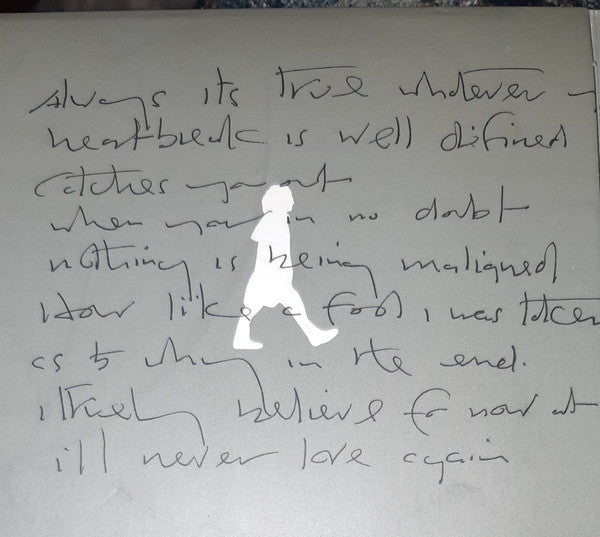 always its true whatever
heartbreak is well difined
catches you out
when your in no doubt
nothing is being maligned
How like a fool i was taken
as to why in the end.
i truely believe for now at
ill never love again